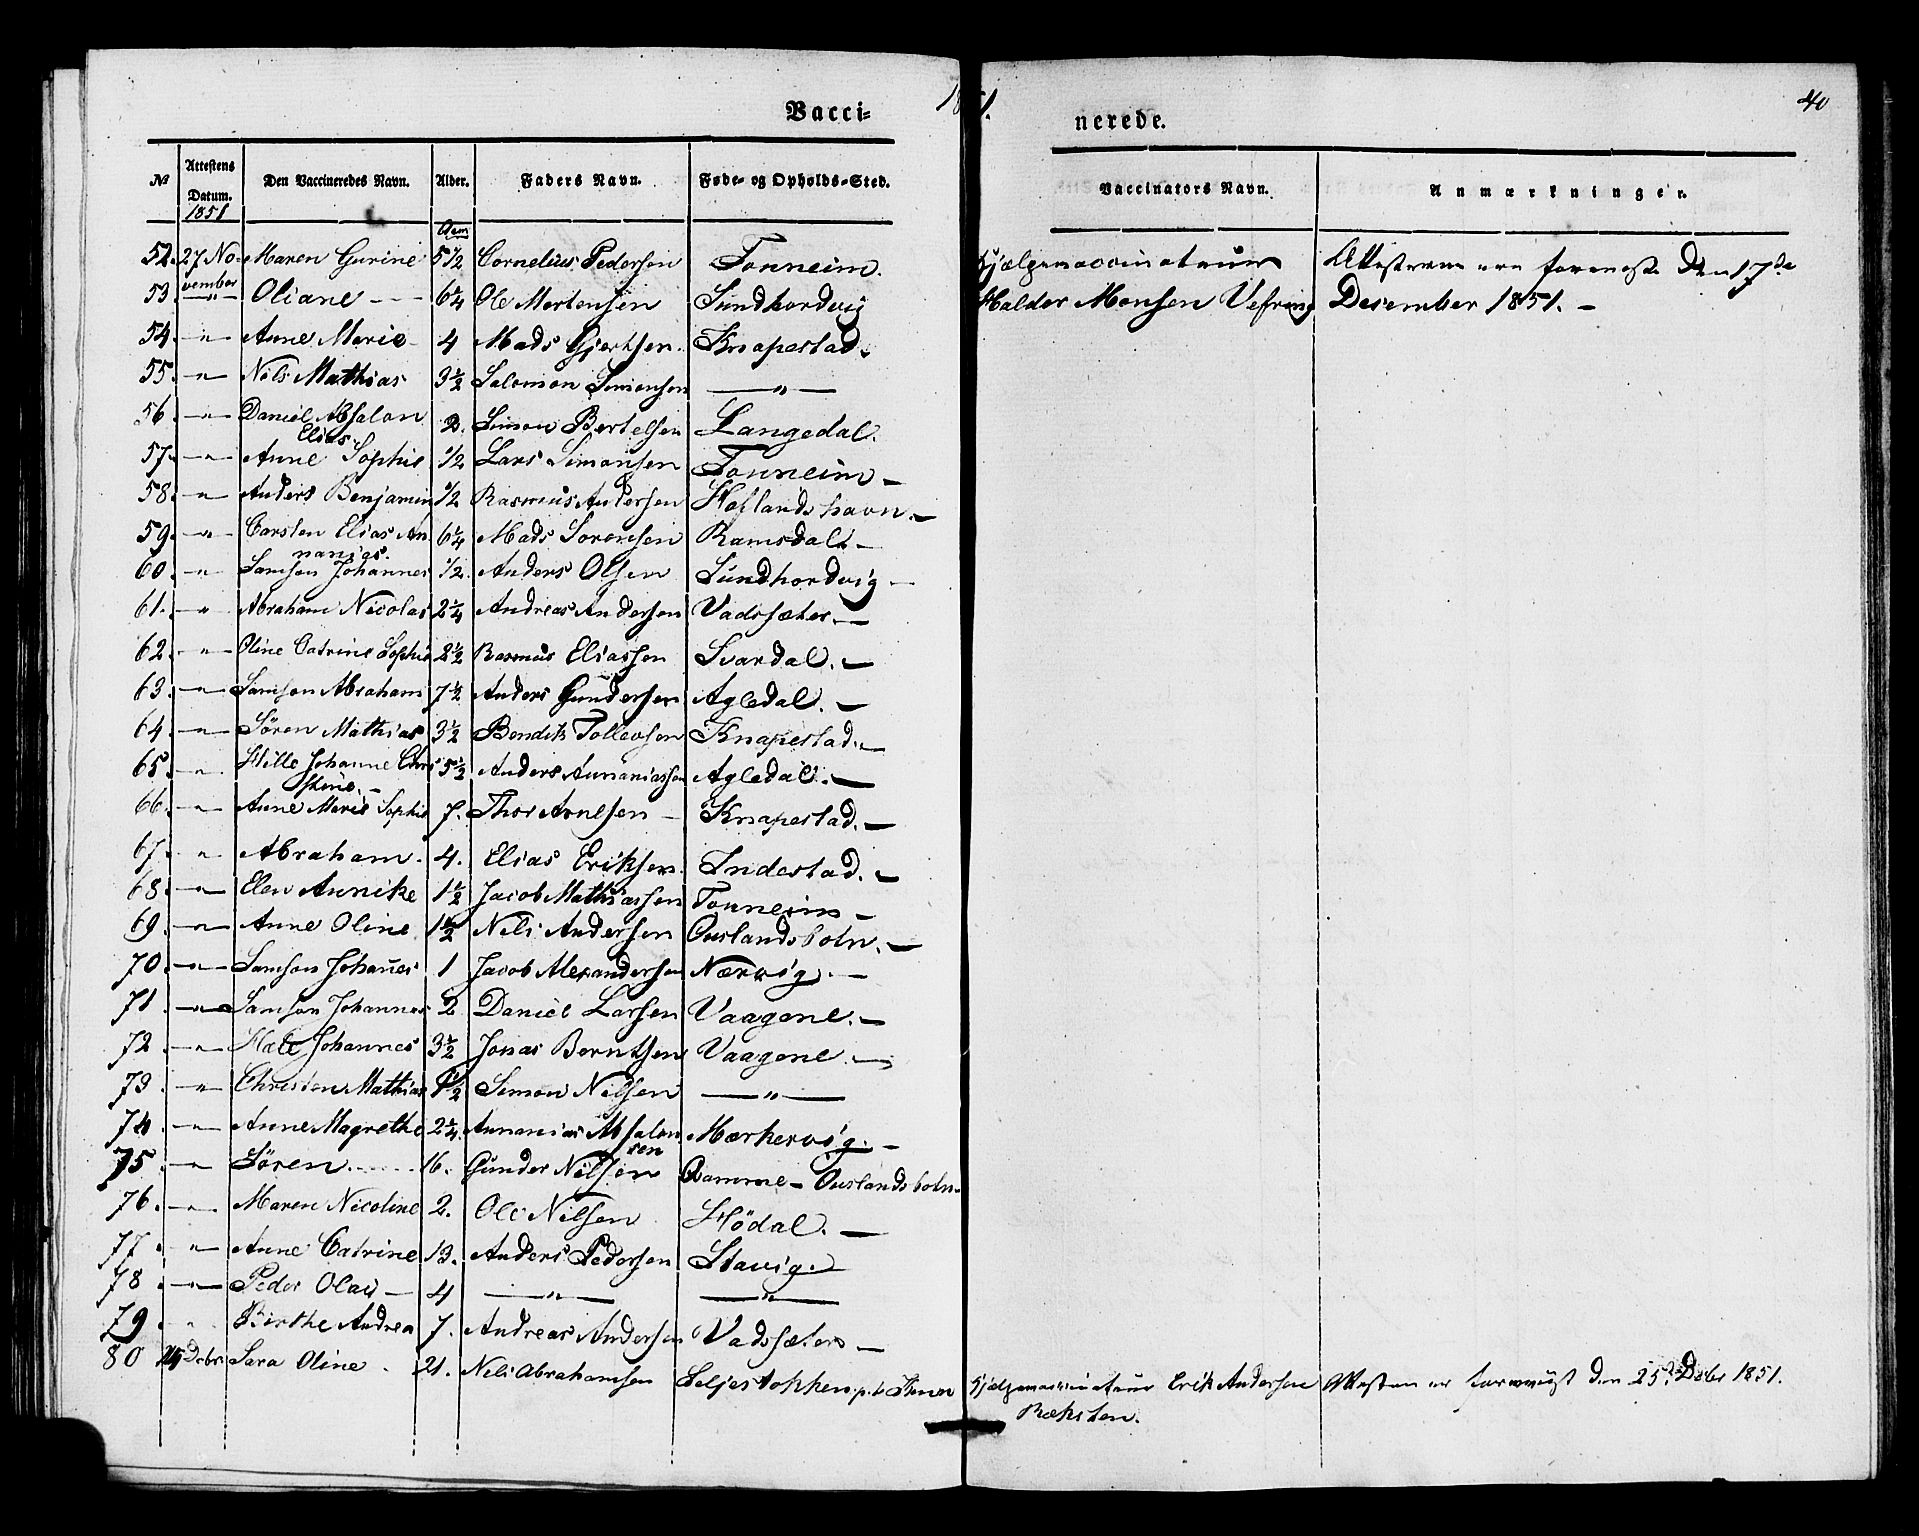 1851.
40
Vaccinerede.
No | Attestens Datum. | Den Vaccineredes Navn. | Alder. | Faders Navn. | Føde- og Opholds-Sted. | Vaccinators Navn. | Anmærkninger.
1851 | Aar
52. 27 No- Maren Gurine 5 1/2 Cornelius Pedersen Tonneim. Hjælpevaccinateur Attesterne ere fornøste den 17de
vember
53. -"- Oliane --- 6 1/4 Ole Mortensen Sundhordvig Haldor Monsen Vefring December 1851. -
54. -"- Anne Marie 4 Mads Gjertsen. Knapestad.
55. -"- Nils Mathias 3 1/2 Salomon Simonsen -"-
56. -"- Daniel Absalon 2. Simon Bertelsen Langedal.
Elias
57. -"- Anne Sophie 1/2 Lars Simonsen Tonneim -
58. -"- Anders Benjamin 1/2 Rasmus Andersen Heflandshavn. -
59. -"- Carsten Elias An- 6 1/4 Mads Sørensen Ramsdal. -
nanias.
60. " Samson Johannes 1/2. Anders Olsen Sundhordvig -
61. -"- Abraham Nicolas 2 1/4 Andreas Andersen Vadsæter. -
62. -"- Oline Catrine Sophie 2 1/2 Rasmus Eliassen Svardal. -
63. -"- Samson Abraham 7 1/2 Anders Gundersen Agledal. -
64. -"- Sören Mathias 3 1/2 Bendik Tollevsen Knapestad. -
65. -"- Hille Johanne Chri 5 1/2 Anders Annaniassen Agledal. -
stine. -
66. -"- Anne Marie Sophie 7. Thor Arnesen - Knapestad. -
67. -"- Abraham. 4. Elias Eriksen. Indestad. -
68. -"- Elen Annike 1 1/2 Jacob Mathiassen Tonneim -
69. -"- Anne Oline 1 1/2 Nils Andersen Ouslandsbotn. -
70. -"- Samson Johannes 1 Jacob Alexandersen Nærvig. -
71. -"- Samson Johannes 2 Daniel Larsen Vaagene. -
72 -"- Johannes 3 1/2 Jonas Berntsen Vaagene -
73. -"- Christen Mathias 1/2 Simon Nilsen -"-
74 -"- Anne Magrethe 2 1/4. Annanias Absalon Mærkevig. -
sen
75 -"- Sören ----- 16. Gunder Nilsen Qvamme - Ouslandsbotn -
76. -"- Maren Nicoline 2. Ole Nilsen Hödal. -
77. -"- Anne Catrine 13. Anders Pedersen Stavig. -
78. -"- Peder Olai - 4 -"- -"-
79 " Birthe Andrea 7. Andreas Andersen Vadsæter -
80 Debr. Sara Oline - 21. Nils Abrahamsen Seljestokken Hjælpevaccinateur Erik Andersen Attesten er fornøiet den 25de Debr 1851.
Ræksten.